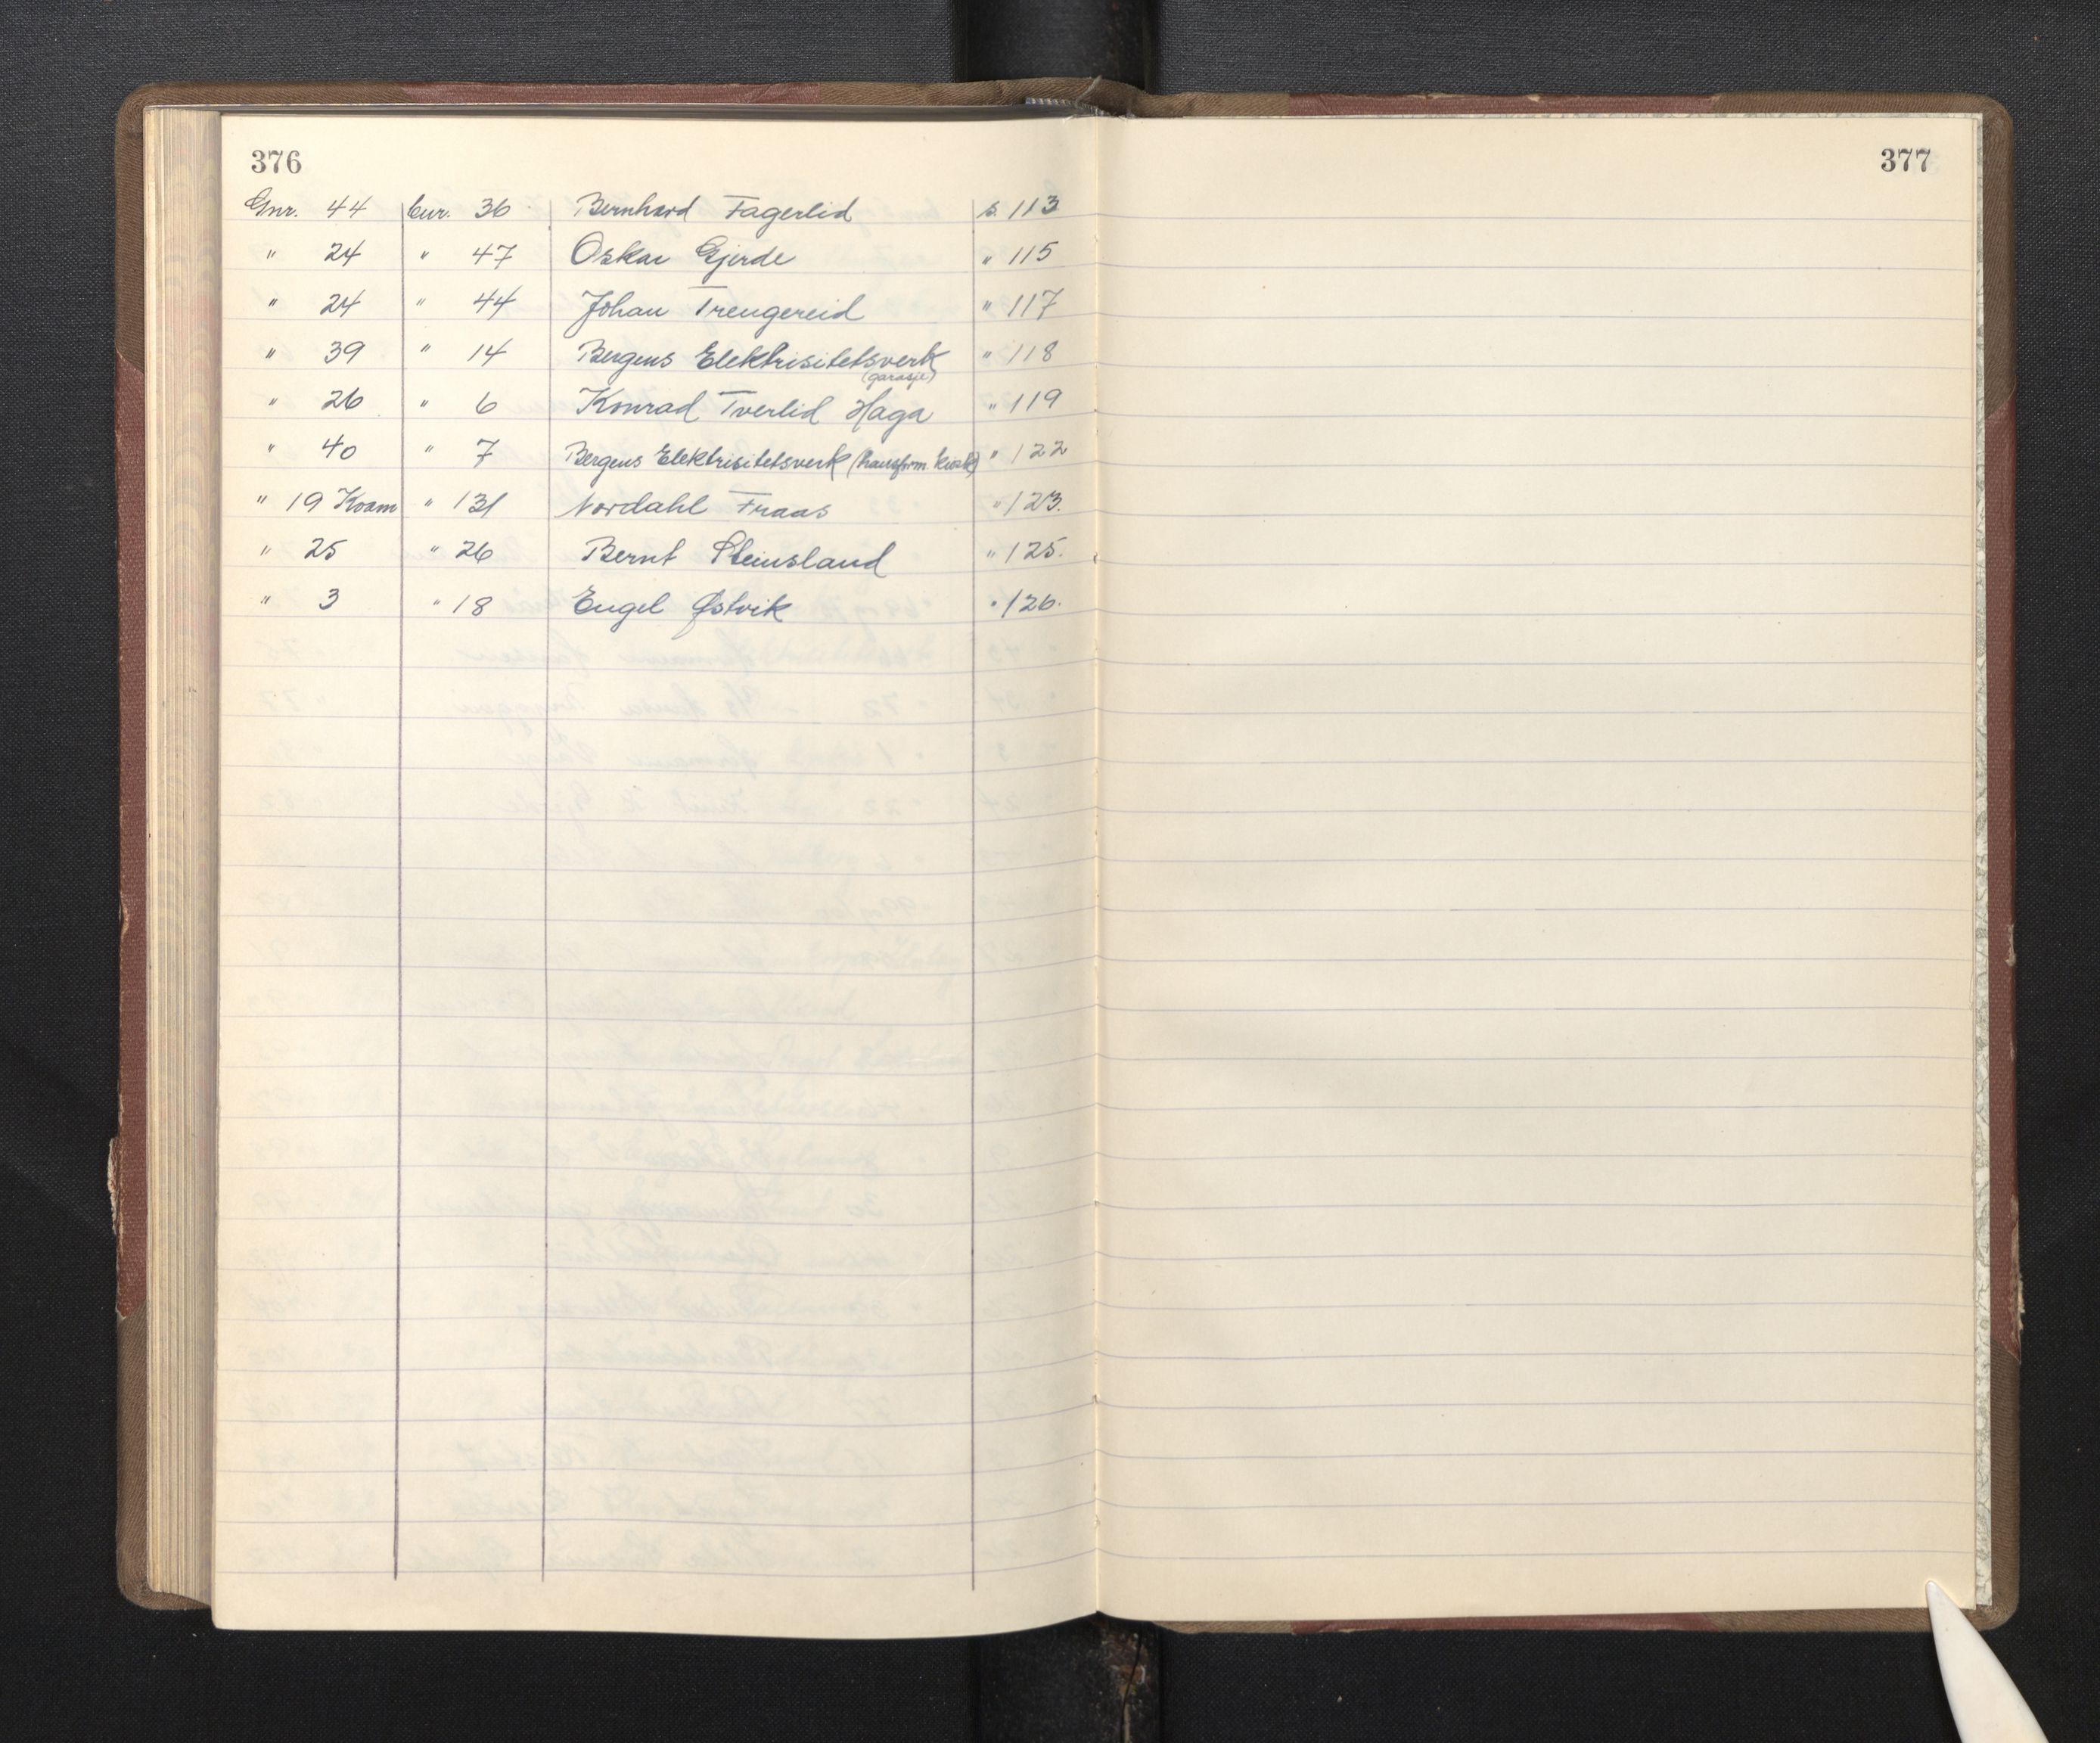 376
377
Gnr. 44 bnr. 36 Bernhard Fagerlid s. 113
" 24 " 47 Oskar Gjerde " 115
" 24 " 44 Johan Trengereid " 117
" 39 " 14 Bergens Elektrisitetsverk " 118
(garasje)
" 26 " 6 Konrad Tverlid Haga " 119
" 40 " 7 Bergens Elektrisitetsverk (transform. kiosk) " 122
" 19 Kvam " 131 Nordahl Fraas " 123.
" 25 " 26 Bernt Steinsland " 125.
" 3 " 18 Engel Østvik " 126.